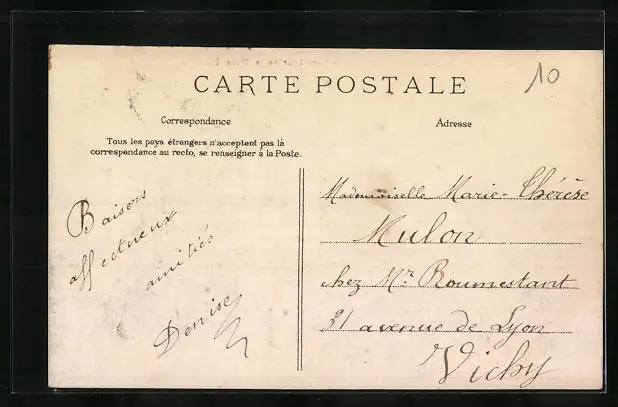 10
CARTE POSTALE
Correspondance
Adresse
Tous les pays étrangers n'acceptent pas là
correspondance au recto, se renseigner à la Poste.
Baisers
affectueux
amitiés
Denise
Mademoiselle Marie-Thérèse
Mulon
chez Mr Roumestant
31 avenue de Lyon
Vichy